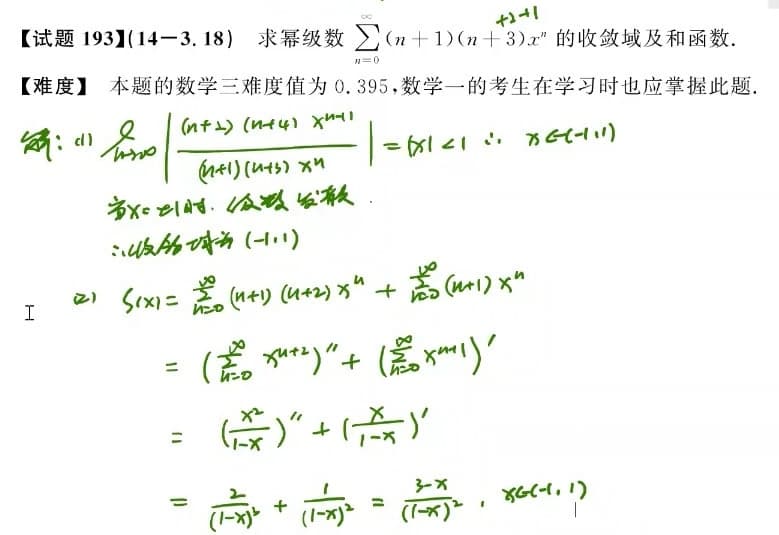 +2+1
【试题 193】(14-3.18) 求幂级数 ∑_{n=0}^{∞} (n+1)(n+3)xⁿ 的收敛域及和函数.
【难度】 本题的数学三难度值为 0.395,数学一的考生在学习时也应掌握此题.
解: (1) lim_{n→∞} | (n+2)(n+4) x^{n+1} / (n+1)(n+3) xⁿ | = |x| < 1 ∴ x∈(-1,1)
当x=±1时, 级数发散.
∴收敛域为 (-1,1)
(2) S(x) = ∑_{n=0}^{∞} (n+1)(n+2) xⁿ + ∑_{n=0}^{∞} (n+1) xⁿ
= (∑_{n=0}^{∞} x^{n+2})'' + (∑_{n=0}^{∞} x^{n+1})'
= (x²/(1-x))'' + (x/(1-x))'
= 2/(1-x)³ + 1/(1-x)² = (3-x)/(1-x)², x∈(-1,1)